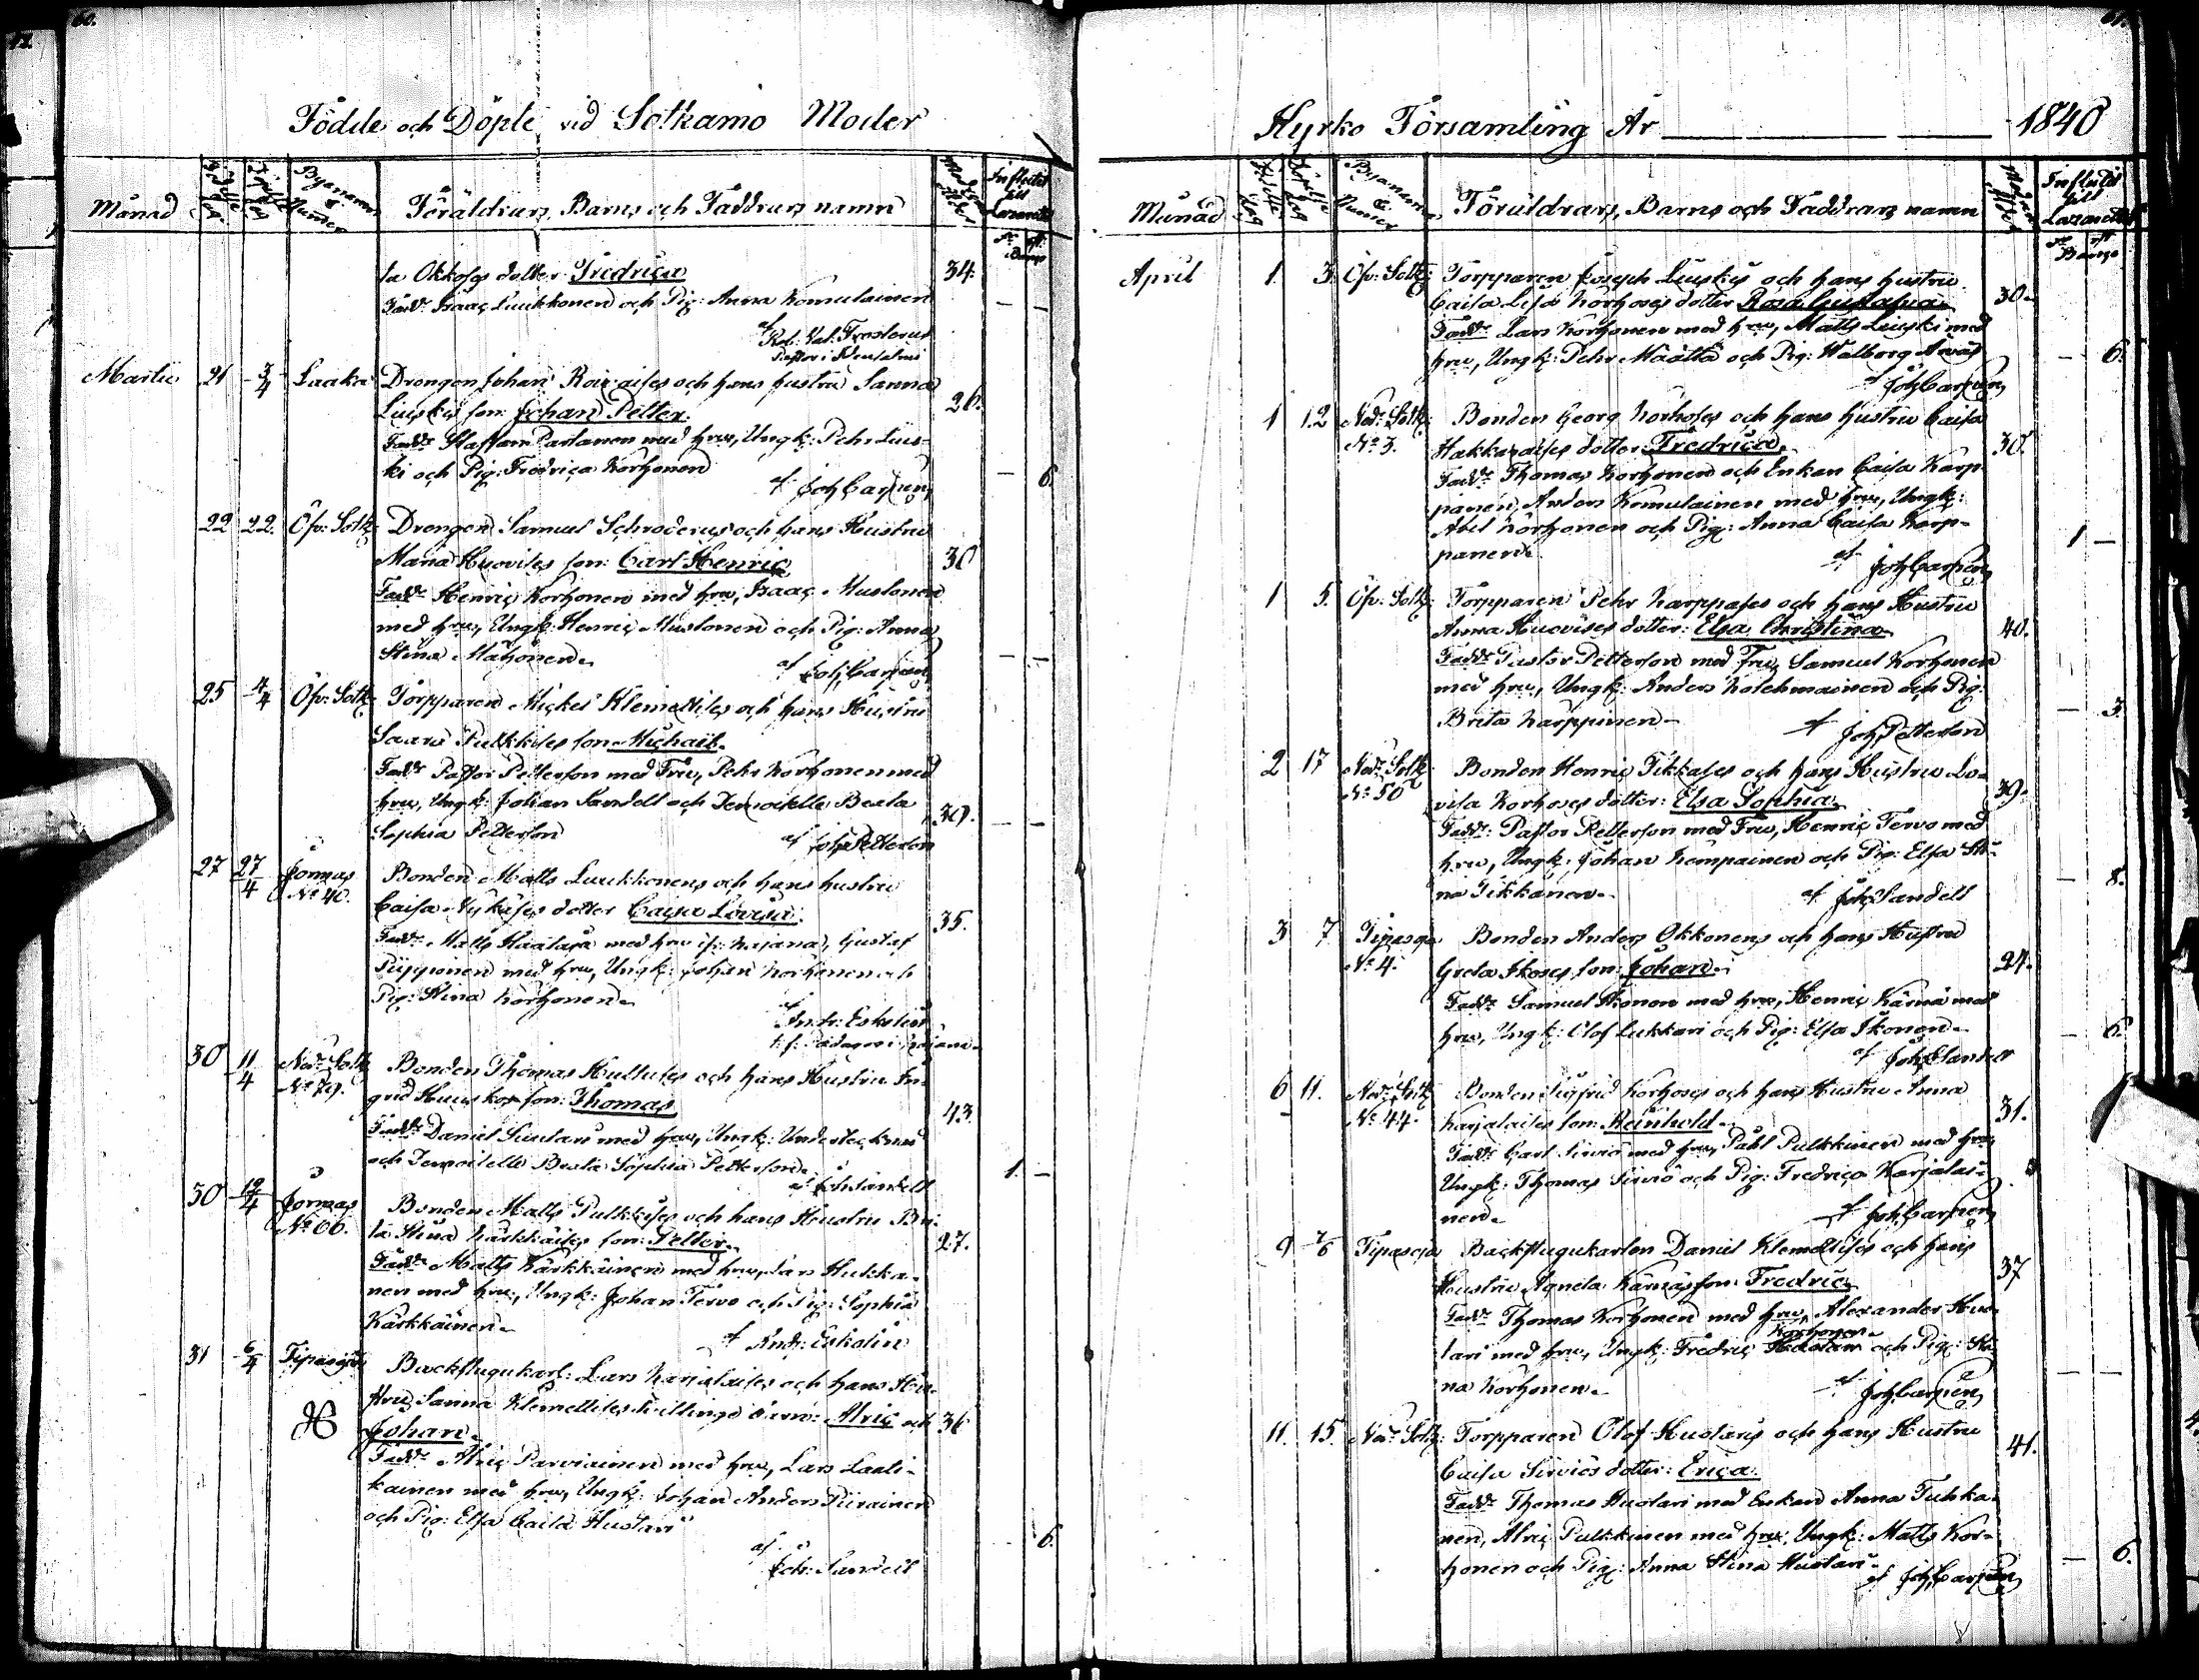 60.
Födde och Döpte vid Sotkamo Moder
Månad
Byanamn & Nummer
Föräldrars, Barns och Faddrars namn
Moderns ålder
Influtit till Lazarettet
la Okkoses dotter Fredrica 34.
Fadd: Isaac Luukkonen och Pig: Anna Komulainen
af
Rob: Val: Frosterus
Pastor i Idensalmi
Martii 21 3/4 Laaka Drengen Johan Roivaises och hans hustru Sanna
Leiskis son: Johan Petter. 26.
Fadd: Staffan Partanen med hru, Ungk: Pehr Leis-
ki och Pig: Fredrica Korhonen — 6.
af Joh: Carpen
22 22. Öfv: Sotk: Drengen Samuel Schroderus och hans Hustru
Maria Huovises son: Carl Henric 30
Fadd: Henric Korhonen med hru, Isaac Mustonen
med hru, Ungk: Henric Mustonen och Pig: Anna
Stina Mähönen. — —
af Joh: Carpen
25 4/4 Öfv: Sotk: Torpparen Michel Klemettises och hans Hustru
Saara Pulkkises son Michael.
Fadd: Pastor Petterson med Fru, Pehr Korhonen med
hru, Ungk: Johan Sandell och Demoiselle Beata 30. — —
Sophia Petterson af Joh: Petterson
27 27/4 Jormas Bonden Matts Luukkonens och hans hustru
No 40. Caisa Nykäses dotter Caisa Lovisa. 35.
Fadd: Matts Haataja med hru ifr: Kajana, Gustaf
Piipponen med hru, Ungk: Johan Korhonen och
Pig: Stina Korhonen.
af
Andr: Eskelin
30 11/4 Ned: Sotk: Bonden Thomas Hulluses och hans Hustru In-
No 79. grid Huuskos son: Thomas 43.
Fadd: Daniel Suutari med hru, Ungk: Undertecknad
och Demoiselle Beata Sophia Petterson. 1. —
af Joh: Sandell
30 12/4 Jormas Bonden Matts Pulkkises och hans Hustru Bri-
No 66. ta Stina Kärkkäises son: Petter. 27.
Fadd: Matts Kärkkäinen med hru, Lars Hukka-
nen med hru, Ungk: Johan Tervo och Pig: Sophia
Kärkkäinen.
af Andr: Eskelin
31 6/4 Tipasoja Backstugukarl: Lars Karjalaises och hans Hu-
stru Sanna Klemettises tvillinge barn: Alric och 36
Johan.
Fadd: Alric Parviainen med hru, Lars Laati-
kainen med hru, Ungk: Johan Anders Piirainen
och Pig: Elsa Caisa Huotari — 6.
af
Joh: Sandell
61.
Kyrko Församling År 1840
Månad
Födelse dag
Döpelse dag
Byanamn & Numer
Föräldrars, Barns och Faddrars namn
Moderns ålder
Influtit till Lazarettet
April 1. 3. Öfv: Sotk: Torpparen Joseph Leiskis och hans hustru
Caisa Lisa Korhoses dotter Rosa Gustafva 30.
Fadd: Lars Korhonen med hru, Matts Leiski med
hru, Ungk: Pehr Määttä och Pig: Walborg — 6.
af Joh: Carpen
1 12 Ned: Sotk: Bonden Georg Korhoses och hans hustru Caisa
No 3. Hakkaraises dotter: Fredrica. 30.
Fadd: Thomas Korhonen och Enkan Caisa Karp-
panen, Anders Komulainen med hru, Ungk:
Abel Korhonen och Pig: Anna Caisa Karp-
panen. 1 —
af Joh: Carpen
1 5. Öfv: Sotk: Torpparen Pehr Karppases och hans Hustru
Anna Huovises dotter: Elsa Christina 40.
Fadd: Pastor Petterson med Fru, Samuel Korhonen
med hru, Ungk: Anders Kolehmainen och Pig:
Brita Karppinen. — 3.
af Joh: Petterson
2 17 Ned: Sotk: Bonden Henric Tikkases och hans Hustru Lo-
No 50 visa Korhoses dotter: Elsa Sophia. 39.
Fadd: Pastor Petterson med Fru, Henric Tervo med
hru, Ungk: Johan Kemppainen och Pig: Elsa Sti-
na Tikkanen. — 8.
af Joh: Sandell
3 7 Tipasoja Bonden Anders Okkonens och hans Hustru
No 4. Greta Ikoses son: Johan. 24.
Fadd: Samuel Ikonen med hru, Henric Kärnä med
hru, Ungk: Olof Lukkari och Pig: Elsa Ikonen. — 6.
af
6 11. Ned: Sotk: Bonden Sigfrid Korhoses och hans Hustru Anna
No 44. Karjalaises son: Reinhold. 31.
Fadd: Carl Sirviö med hru, Påhl Pulkkinen med hru,
Ungk: Thomas Sirviö och Pig: Fredrica Karjalai-
nen.
af Joh: Carpen
9 Tipasoja Backstugukarlen Daniel Klemettises och hans
Hustru Agneta Kärnäs son: Fredric 37
Fadd: Thomas Korhonen med hru, Alexander Huo-
tari med hru, Ungk: Fredric Huotari Korhonen och Pig: Sti-
na Korhonen. — —
af Joh: Carpen
11. 15. Ned: Sotk: Torpparen Olof Huotaris och hans Hustru
Caisa Sirviös dotter: Erica. 41.
Fadd: Thomas Huotari med Enkan Anna Tuhka-
nen, Alric Pulkkinen med hru, Ungk: Matts Kor-
honen och Pig: Anna Stina Huotari — 6.
af Joh: Carpen